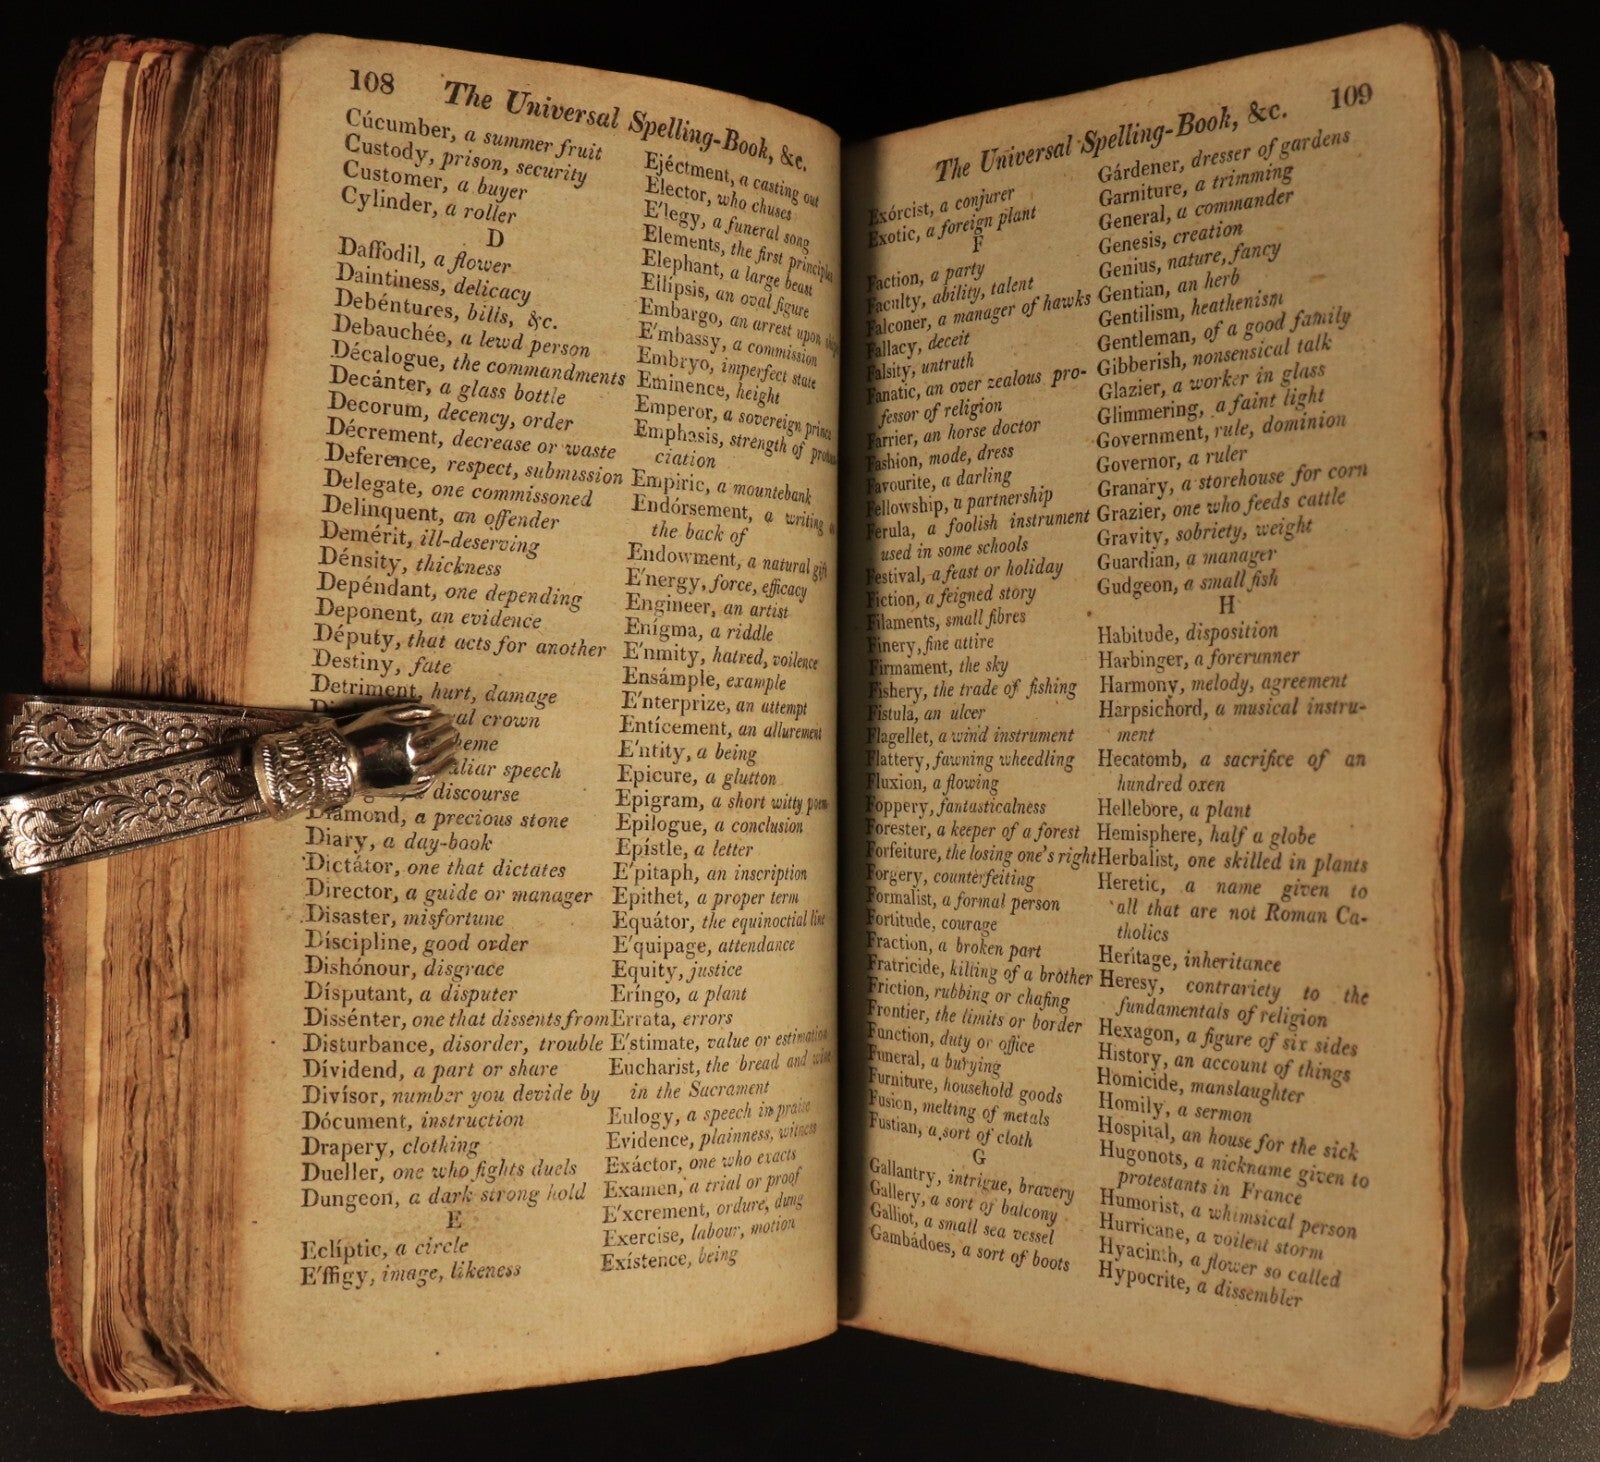 108
The Universal Spelling-Book, &c.
Cúcumber, a summer fruit
Custody, prison, security
Customer, a buyer
Cylinder, a roller
D
Daffodil, a flower
Daintiness, delicacy
Debéntures, bills, &c.
Debauchée, a lewd person
Décalogue, the commandments
Decánter, a glass bottle
Decorum, decency, order
Décrement, decrease or waste
Deference, respect, submission
Delegate, one commissoned
Delinquent, an offender
Demérit, ill-deserving
Dénsity, thickness
Depéndant, one depending
Deponent, an evidence
Députy, that acts for another
Destiny, fate
Detriment, hurt, damage
crown
speech
discourse
Diamond, a precious stone
Diary, a day-book
Dictátor, one that dictates
Director, a guide or manager
Disaster, misfortune
Discipline, good order
Dishónour, disgrace
Dísputant, a disputer
Dissénter, one that dissents from
Disturbance, disorder, trouble
Dividend, a part or share
Divísor, number you devide by
Dócument, instruction
Drapery, clothing
Dueller, one who fights duels
Dungeon, a dark strong hold
E
Eclíptic, a circle
E'ffigy, image, likeness
Ejéctment, a casting out
Elector, who chuses
E'legy, a funeral song
Elements, the first principles
Elephant, a large beast
Ellipsis, an oval figure
Embargo, an arrest upon
E'mbassy, a commission
Embryo, imperfect state
Eminence, height
Emperor, a sovereign prince
Emphasis, strength of
ciation
Empiric, a mountebank
Endórsement, a writing on
the back of
Endowment, a natural gift
E'nergy, force, efficacy
Engineer, an artist
Enígma, a riddle
E'nmity, hatred, voilence
Ensámple, example
E'nterprize, an attempt
Entícement, an allurement
E'ntity, a being
Epicure, a glutton
Epigram, a short witty poem
Epilogue, a conclusion
Epístle, a letter
E'pitaph, an inscription
Epithet, a proper term
Equátor, the equinoctial line
E'quipage, attendance
Equity, justice
Eríngo, a plant
Errata, errors
E'stimate, value or estimation
Eucharist, the bread and wine
in the Sacrament
Eulogy, a speech in praise
Evidence, plainness, witness
Exáctor, one who exacts
Examen, a trial or proof
E'xcrement, ordure, dung
Exercise, labour, motion
Exístence, being
109
The Universal Spelling-Book, &c.
Exórcist, a conjurer
Exotic, a foreign plant
F
Faction, a party
Faculty, ability, talent
Falconer, a manager of hawks
Fallacy, deceit
Falsity, untruth
Fanatic, an over zealous pro-
fessor of religion
Farrier, an horse doctor
Fashion, mode, dress
Favourite, a darling
Fellowship, a partnership
Ferula, a foolish instrument
used in some schools
Festival, a feast or holiday
Fiction, a feigned story
Filaments, small fibres
Finery, fine attire
Firmament, the sky
Fishery, the trade of fishing
Fistula, an ulcer
Flagellet, a wind instrument
Flattery, fawning wheedling
Fluxion, a flowing
Foppery, fantasticalness
Forester, a keeper of a forest
Forfeiture, the losing one's right
Forgery, counterfeiting
Formalist, a formal person
Fortitude, courage
Fraction, a broken part
Fratricide, killing of a brother
Friction, rubbing or chafing
Frontier, the limits or border
Function, duty or office
Funeral, a burying
Furniture, household goods
Fusion, melting of metals
Fustian, a sort of cloth
G
Gallantry, intrigue, bravery
Gallery, a sort of balcony
Galliot, a small sea vessel
Gambádoes, a sort of boots
Gárdener, dresser of gardens
Garniture, a trimming
General, a commander
Genesis, creation
Genius, nature, fancy
Gentian, an herb
Gentilism, heathenism
Gentleman, of a good family
Gibberish, nonsensical talk
Glazier, a worker in glass
Glimmering, a faint light
Government, rule, dominion
Governor, a ruler
Granary, a storehouse for corn
Grazier, one who feeds cattle
Gravity, sobriety, weight
Guardian, a manager
Gudgeon, a small fish
H
Habitude, disposition
Harbinger, a forerunner
Harmony, melody, agreement
Harpsichord, a musical instru-
ment
Hecatomb, a sacrifice of an
hundred oxen
Hellebore, a plant
Hemisphere, half a globe
Herbalist, one skilled in plants
Heretic, a name given to
all that are not Roman Ca-
tholics
Heritage, inheritance
Heresy, contrariety to the
fundamentals of religion
Hexagon, a figure of six sides
History, an account of things
Homicide, manslaughter
Homily, a sermon
Hospital, an house for the sick
Hugonots, a nickname given to
protestants in France
Humorist, a whimsical person
Hurricane, a voilent storm
Hyacinth, a flower so called
Hypocrite, a dissembler